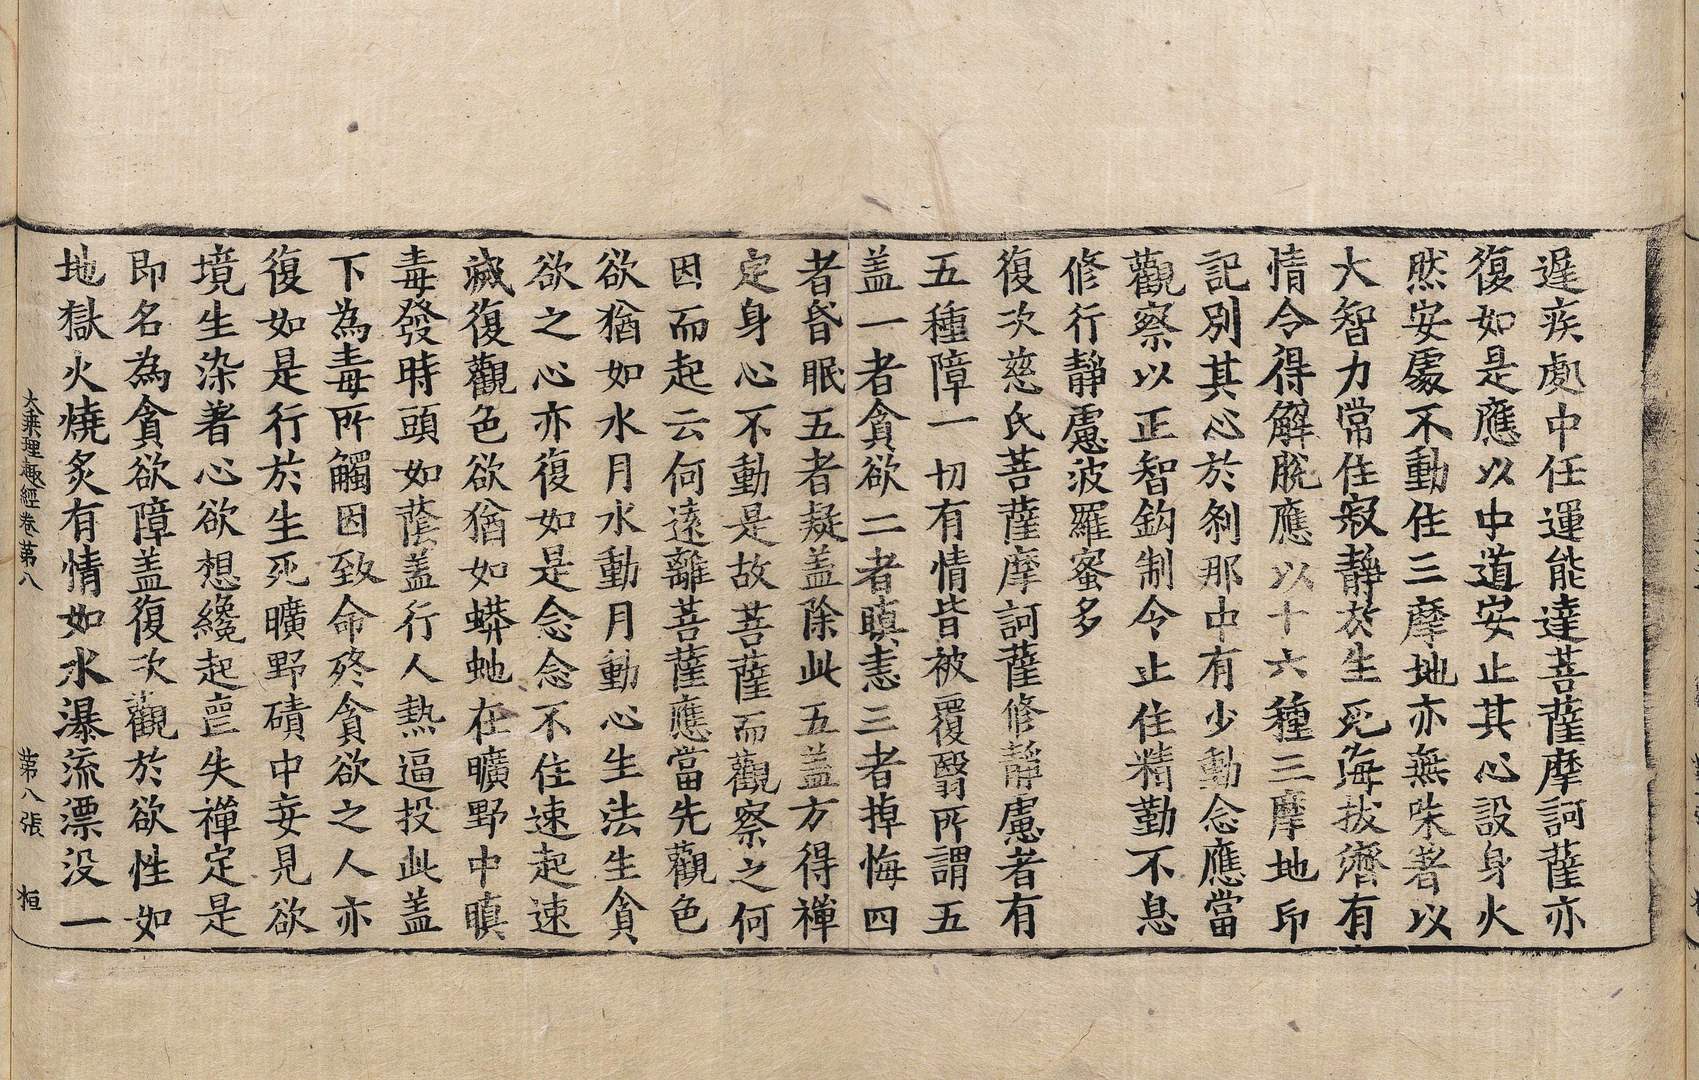 遲疾處中任運能達菩薩摩訶薩亦
復如是應以中道安止其心設身火
然安處不動住三摩地亦無味著以
大智力常住寂靜於生死海拔濟有
情令得解脫應以十六種三摩地印
記別其心於剎那中有少動念應當
觀察以正智鈎制令止住精勤不息
修行靜慮波羅蜜多
復次慈氏菩薩摩訶薩修靜慮者有
五種障一切有情皆被覆翳所謂五
盖一者貪欲二者瞋恚三者掉悔四
者昏眠五者疑盖除此五盖方得禅
定身心不動是故菩薩而觀察之何
因而起云何遠離菩薩應當先觀色
欲猶如水月水動月動心生法生貪
欲之心亦復如是念念不住速起速
滅復觀色欲猶如蟒虵在曠野中瞋
毒發時頭如蔭盖行人熱逼投此盖
下為毒所觸因致命終貪欲之人亦
復如是行於生死曠野磧中妄見欲
境生染著心欲想纔起㝵失禅定是
即名為貪欲障盖復次觀於欲性如
地獄火燒炙有情如水瀑流漂没一
大乘理趣經卷第八 第八張 桓